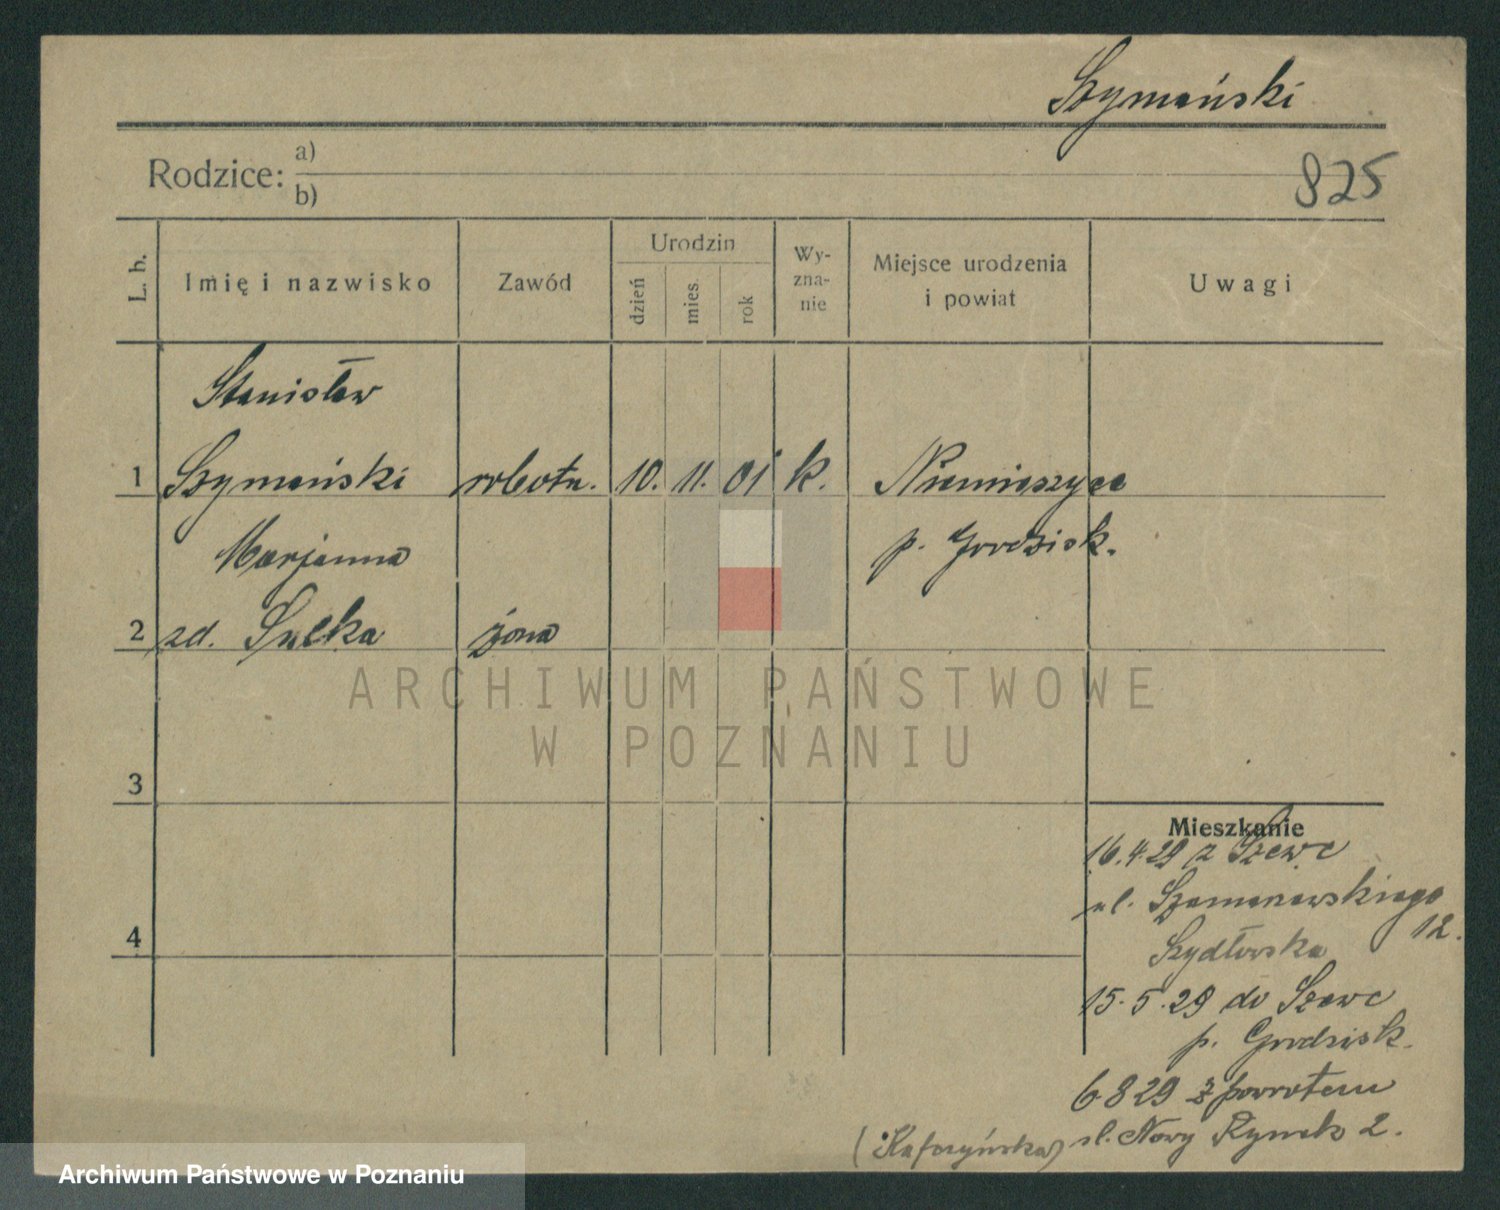 Szymański
Rodzice: a)
b)
825
L. b.
Imię i nazwisko
Zawód
Urodzin
dzień
mies.
rok
Wy-
zna-
nie
Miejsce urodzenia
i powiat
Uwagi
Stanisław
1 Szymański robotn. 10. 11. 01 k.
p. Grodzisk.
Marjanna
2 zd. żona
ARCHIWUM PAŃSTWOWE
W POZNANIU
3
4
Mieszkanie
16.4.29 z Szewc
ul. Szamanowskiego
12.
Szydłowska
15.5.29 do Szewc
p. Grodzisk.
6 8 29 z powrotem
ul. Nowy Rynek 2.
Archiwum Państwowe w Poznaniu